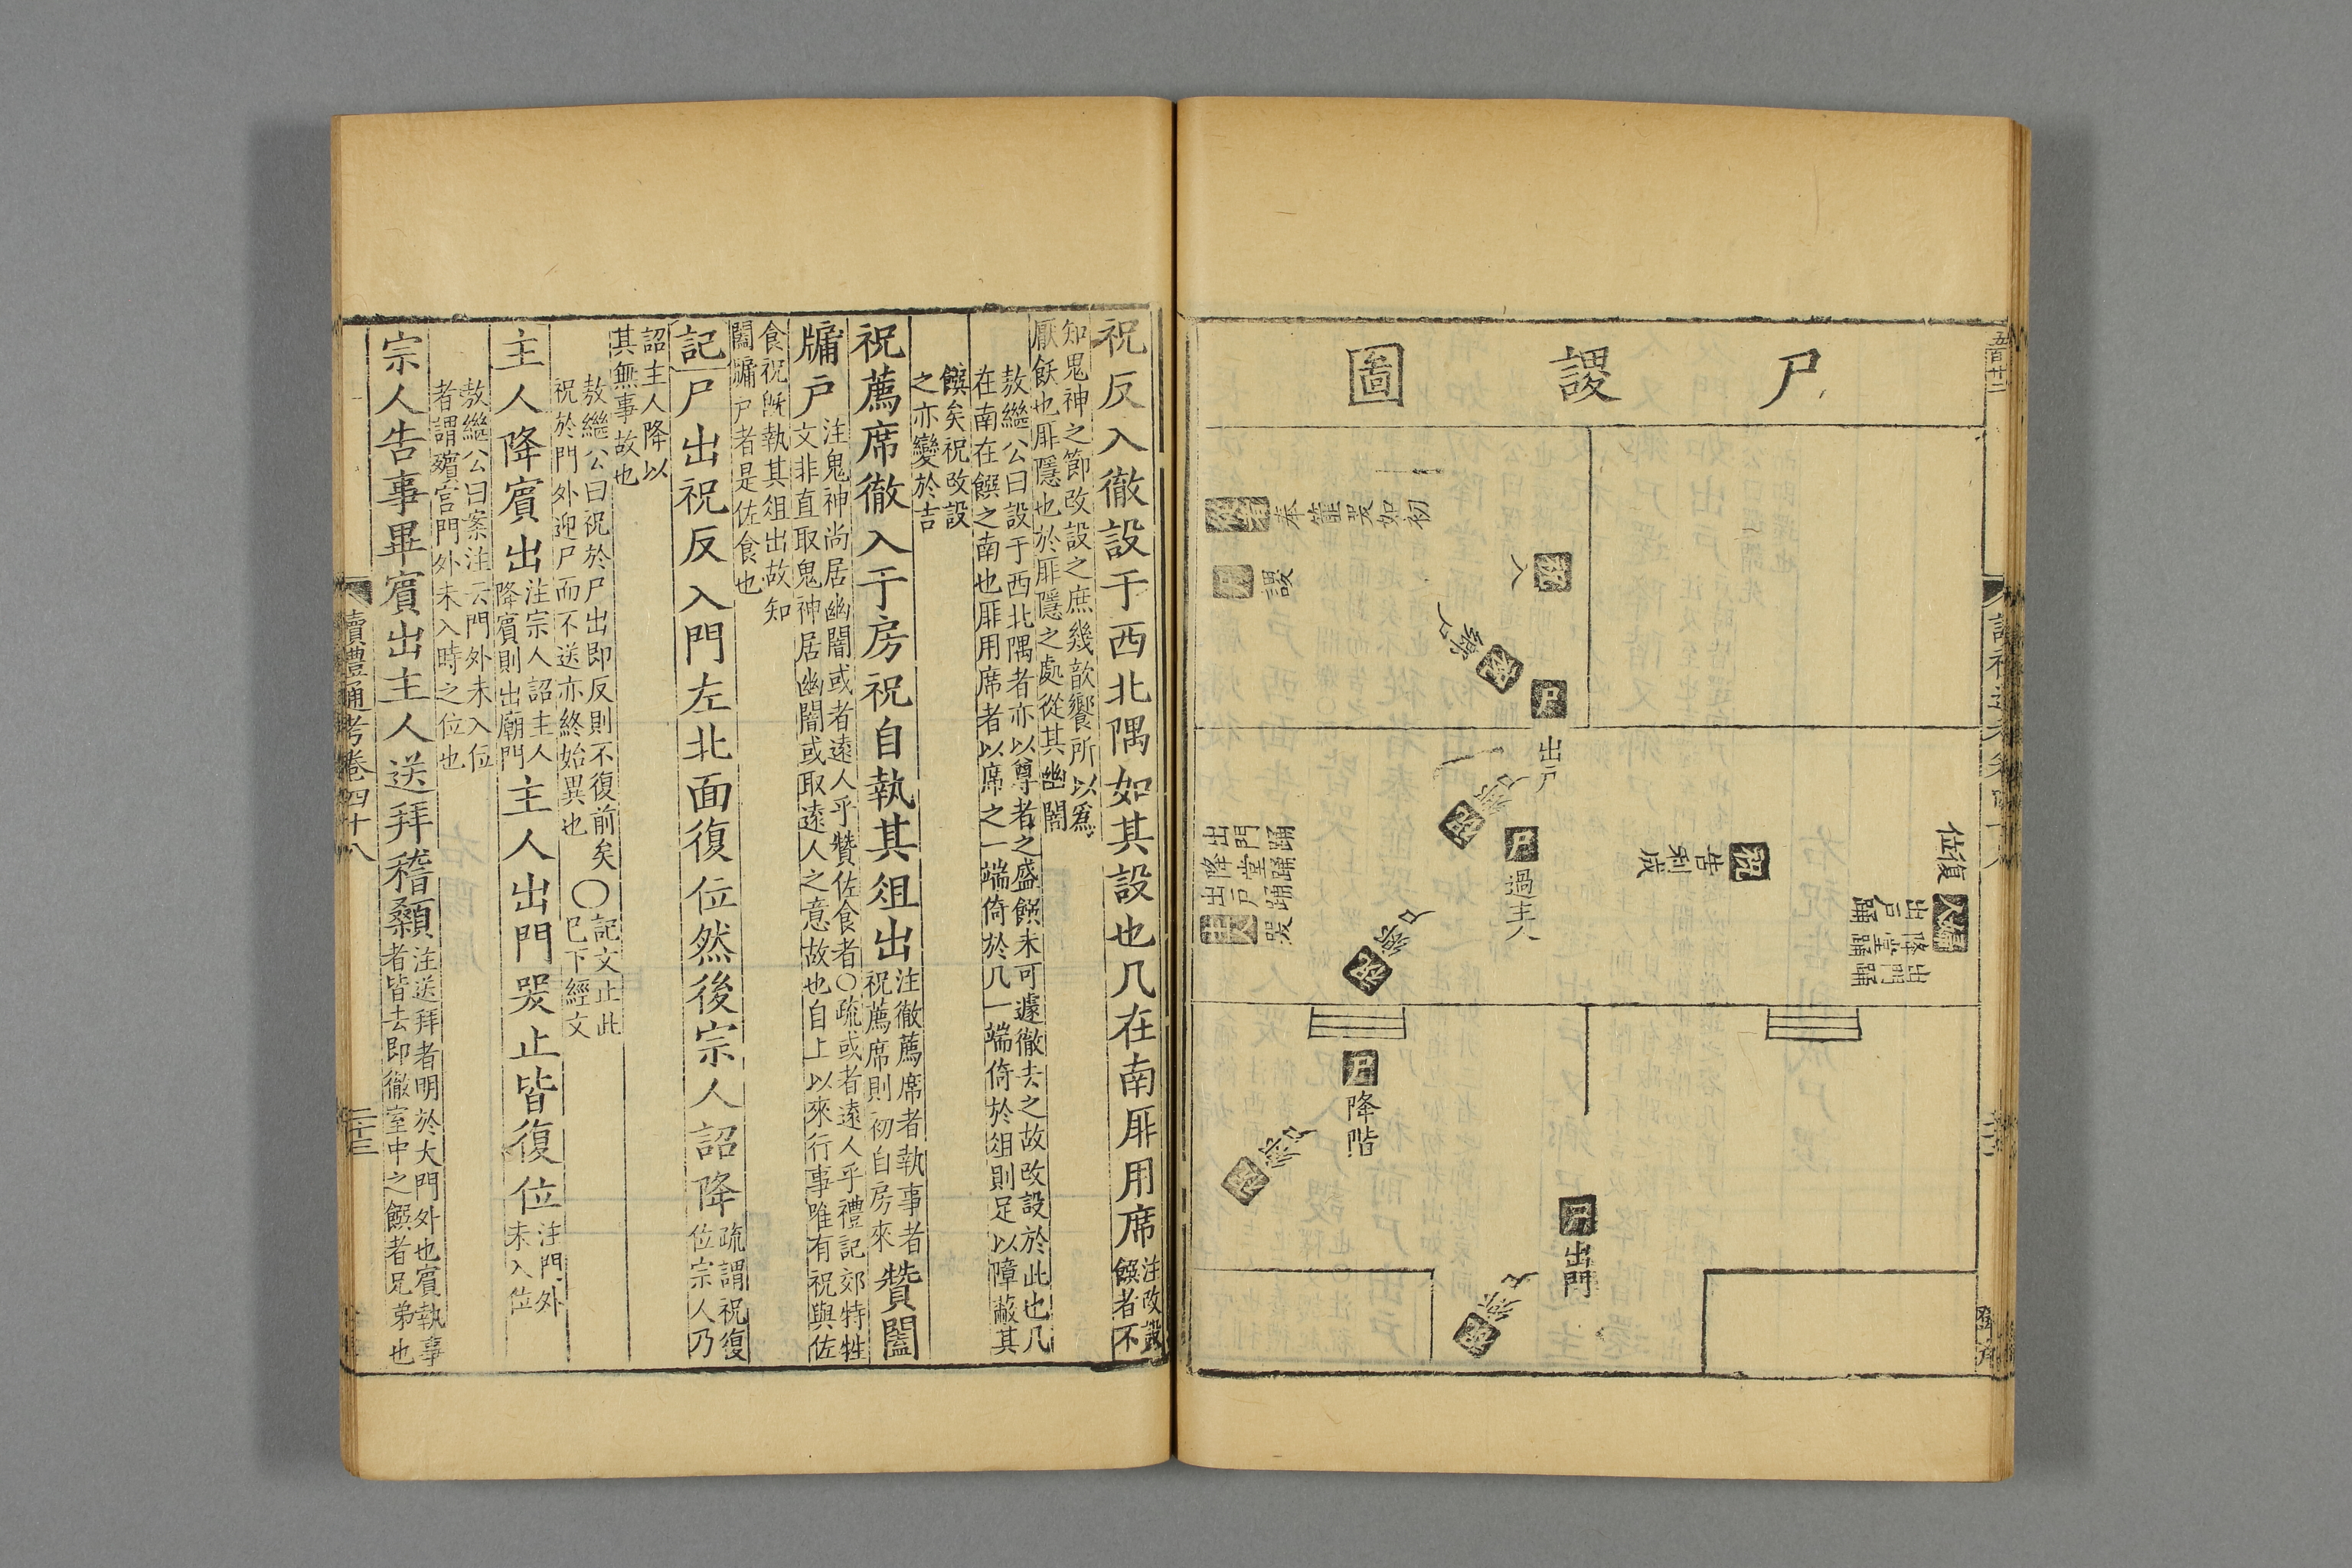 尸謖圖
五百廿二
入
祝
奉篚哭如初
謖
尸
祝
鄉尸
尸
出戶
祝
鄉尸
尸
過主人
祝
鄉尸
祝
告利成
復位
婦人
出戶踊
降堂踊
出門踊
主人
哭
出戶踊
降堂踊
出門踊
尸
降階
祝
鄉尸
尸
出門
祝
鄉尸
祝反入徹設于西北隅如其設也几在南厞用席注改設饌者不
知鬼神之節改設之庶幾歆饗所以爲
厭飫也厞隱也於厞隱之處從其幽闇
敖繼公曰設于西北隅者亦以尊者之盛饌未可遽徹去之故改設於此也几
在南在饌之南也厞用席者以席之一端倚於几一端倚於俎則足以障蔽其
饌矣祝改設
之亦變於吉
祝薦席徹入于房祝自執其俎出注徹薦席者執事者祝薦席則初自房來贊闔
牖戶注鬼神尚居幽闇或者遠人乎贊佐食者〇疏或者遠人乎禮記郊特牲
文非直取鬼神居幽闇或取遠人之意故也自上以來行事唯有祝與佐
食祝旣執其俎出故知
闔牖戶者是佐食也
記尸出祝反入門左北面復位然後宗人詔降疏謂祝復位宗人乃
詔主人降以
其無事故也
敖繼公曰祝於尸出即反則不復前矣〇記文止此
祝於門外迎尸而不送亦終始異也已下經文
主人降賓出注宗人詔主人降賓則出廟門主人出門哭止皆復位注門外未入位
敖繼公曰案注云門外未入位
者謂殯宮門外未入時之位也
宗人告事畢賓出主人送拜稽顙注送拜者明於大門外也賓執事者皆去即徹室中之饌者兄弟也
讀禮通考卷四十八
二十三